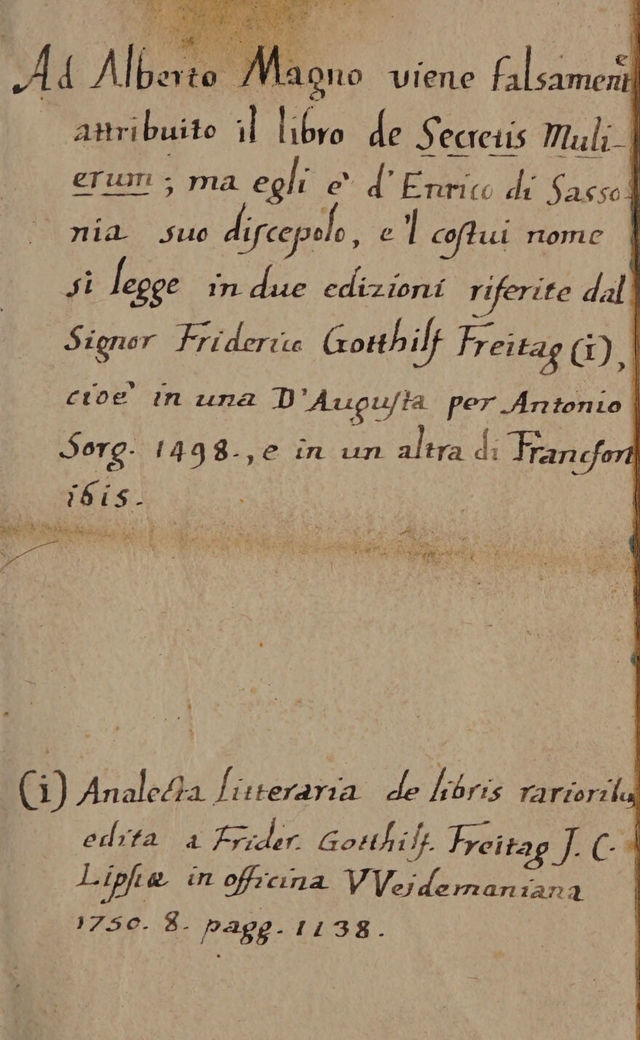 Ad Alberto Magno viene falsament
attribuito il libro de Secretis Muli-
erum; ma egli e' d'Enrico di Sasso-
nia suo discepolo, e'l costui nome
si legge in due edizioni riferite dal
Signor Friderico Gotthilf Freitag (i),
cioe' in una D'Augusta per Antonio
Sorg. 1498., e in un altra di Francfort
1615.
(i) Analecta litteraria de libris rarioribus
edita a Frider. Gotthilf. Freitag J. C.
Lipsiæ in officina VVeidemaniana
1750. 8. pagg. 1138.